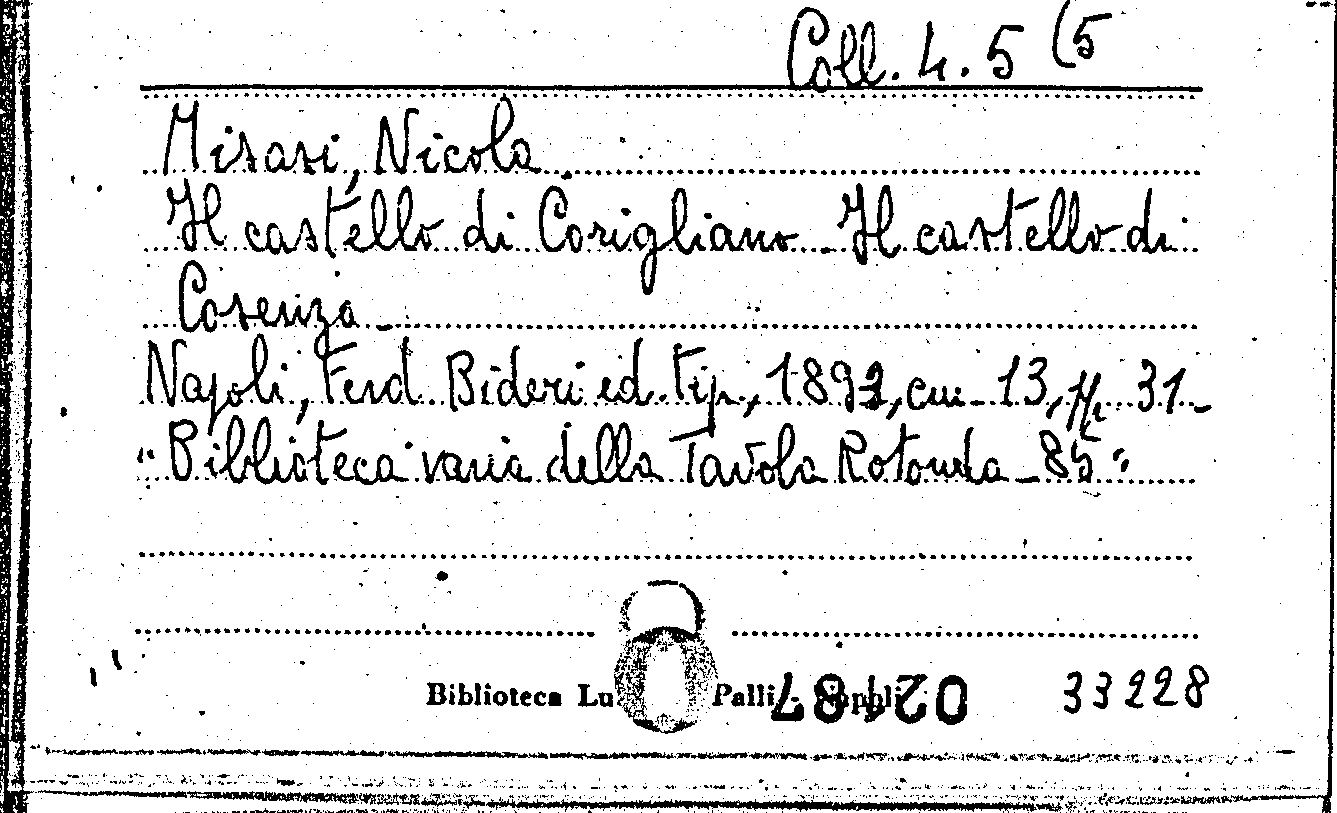 Coll. 4. 5 (5
Misasi, Nicola
Il castello di Corigliano - Il castello di
Cosenza -
Napoli, Ferd. Bideri ed. tip., 1892, cm. 13, pp. 31 -
"Biblioteca varia della Tavola Rotonda - 85"
Biblioteca Lu Palli - Napoli
021487 33228